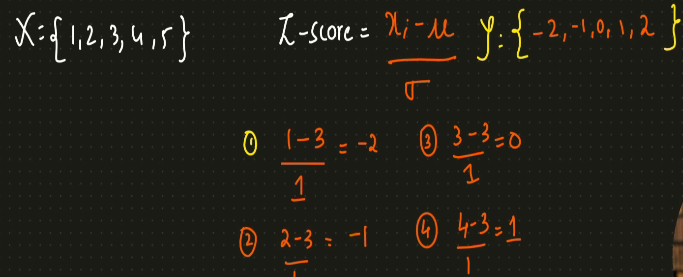 X = {1, 2, 3, 4, 5} Z-score = xᵢ - μ / σ y: {-2, -1, 0, 1, 2}
① 1-3 / 1 = -2 ③ 3-3 / 1 = 0
② 2-3 / 1 = -1 ④ 4-3 / 1 = 1